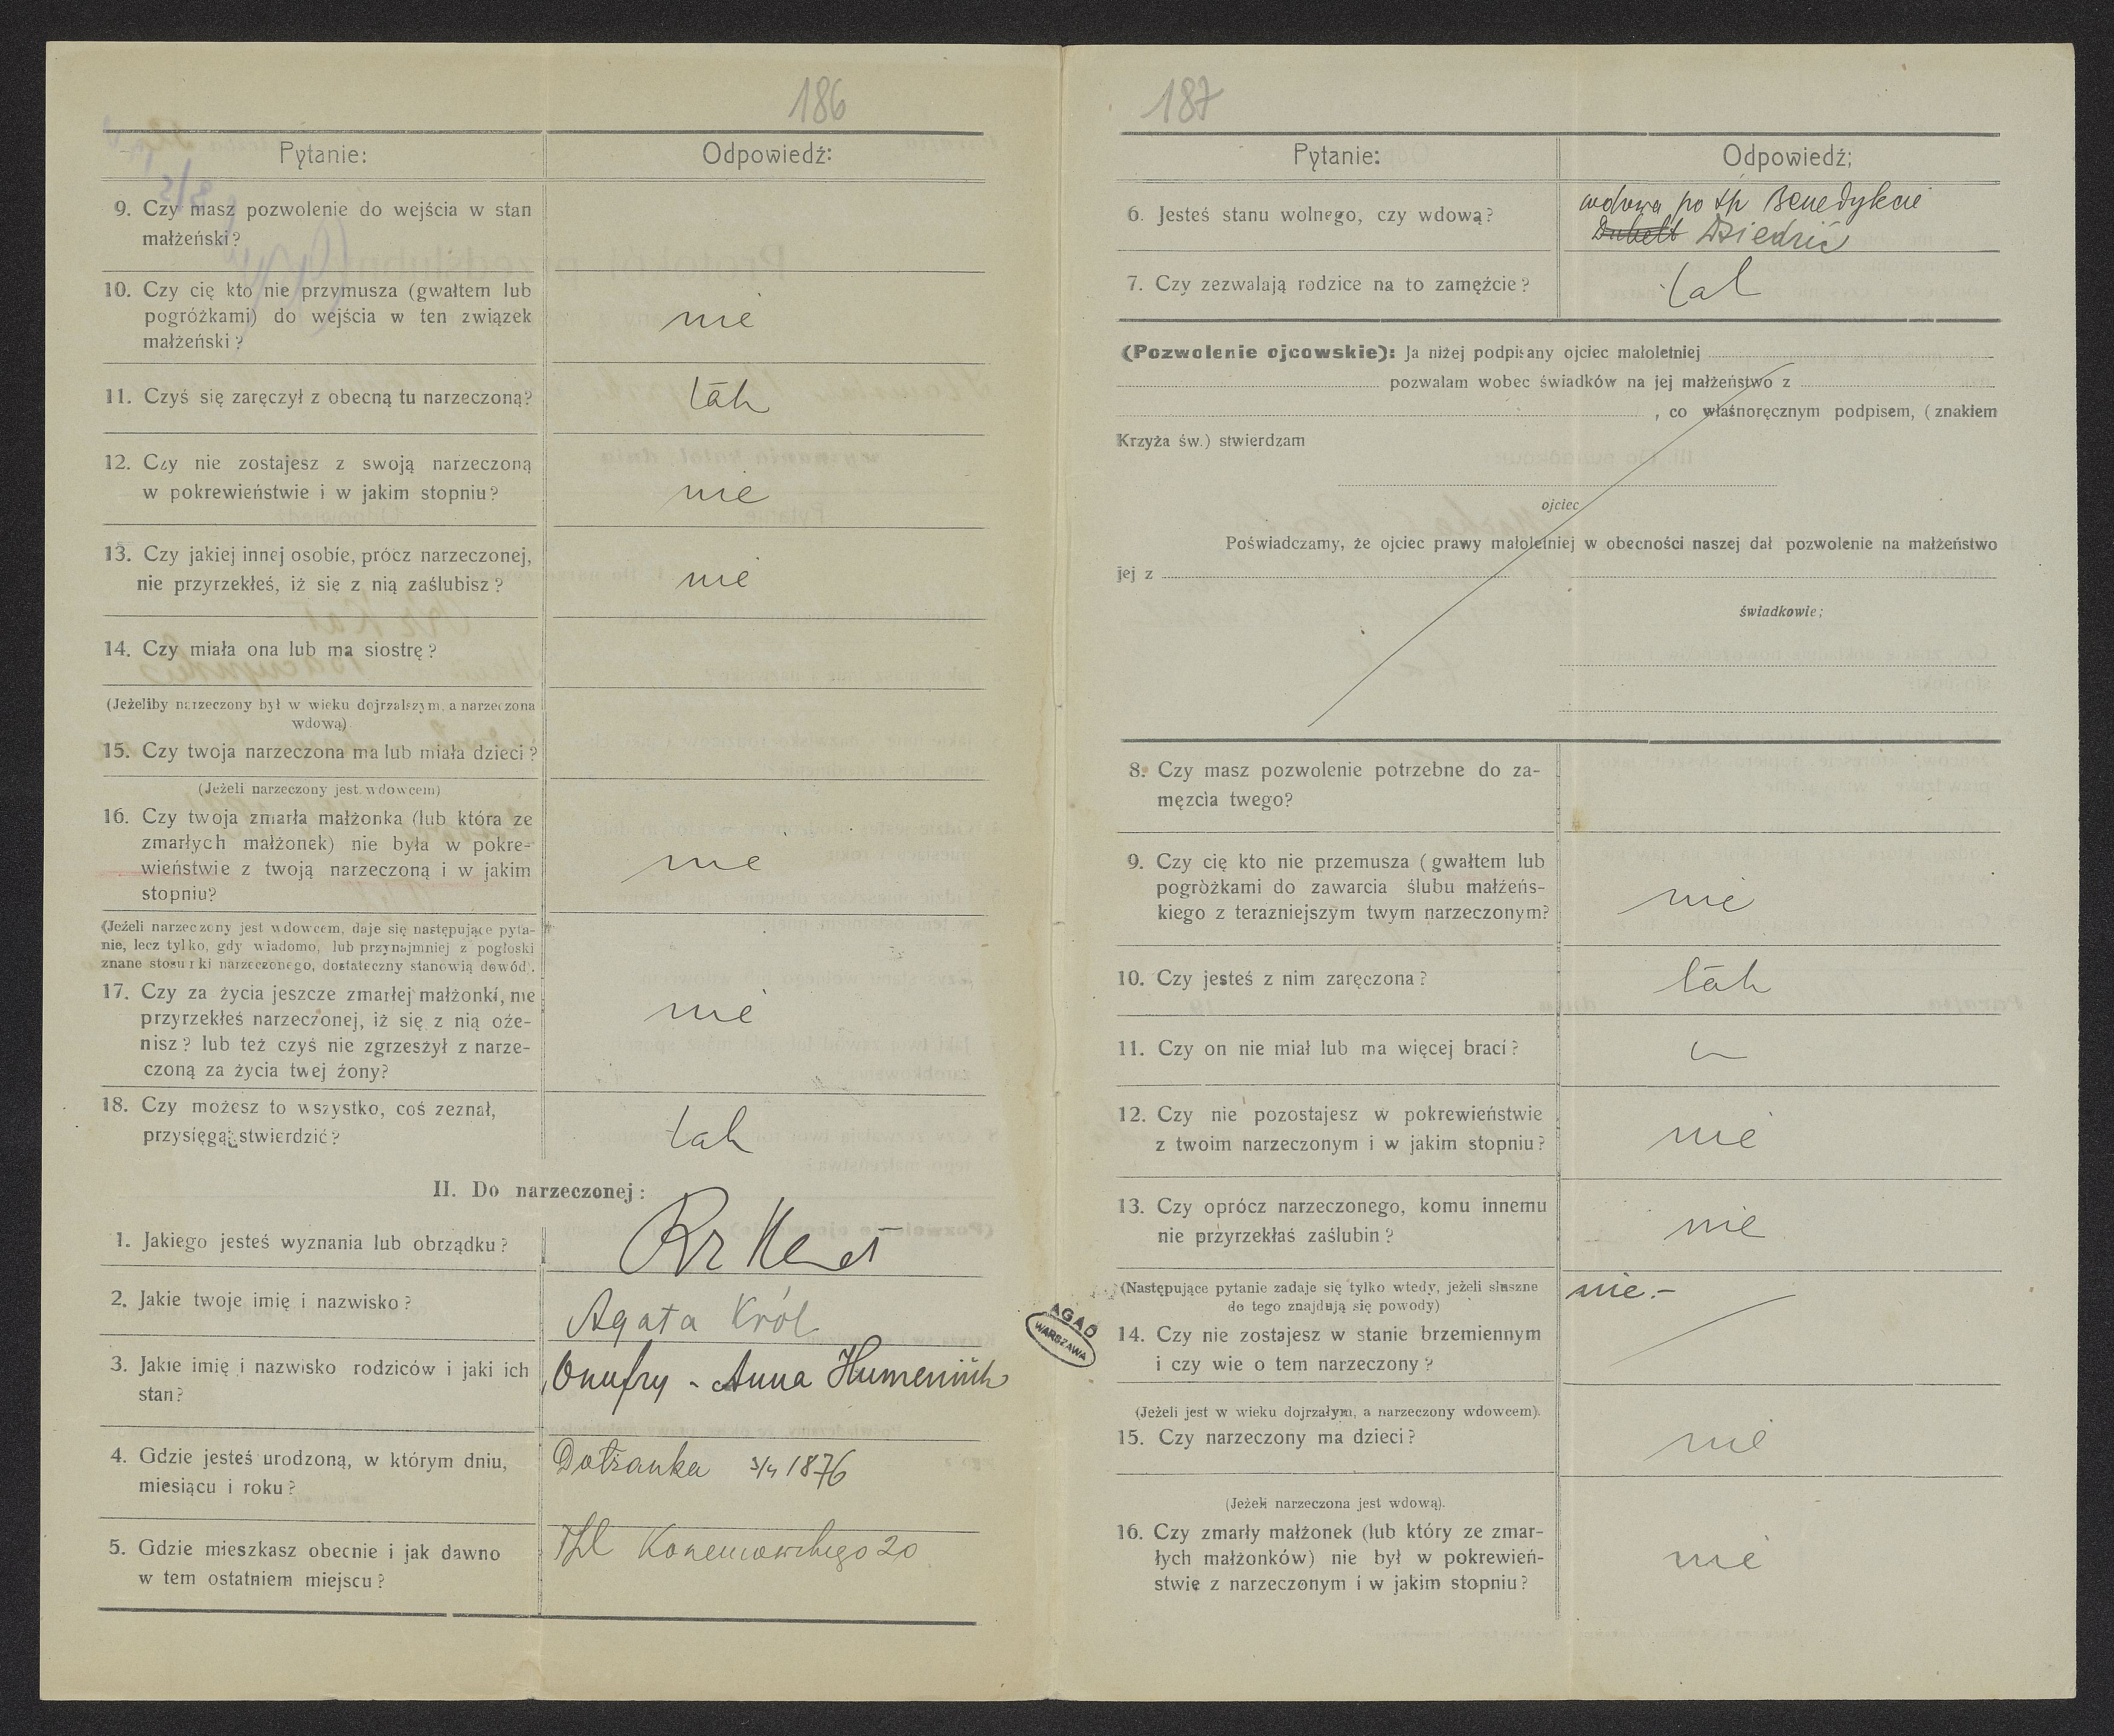 186
Pytanie:
Odpowiedź:
9. Czy masz pozwolenie do wejścia w stan
małżeński?
10. Czy cię kto nie przymusza (gwałtem lub
pogróżkami) do wejścia w ten związek
małżeński?
nie
11. Czyś się zaręczył z obecną tu narzeczoną?
tak
12. Czy nie zostajesz z swoją narzeczoną
w pokrewieństwie i w jakim stopniu?
nie
13. Czy jakiej innej osobie, prócz narzeczonej,
nie przyrzekłeś, iż się z nią zaślubisz?
nie
14. Czy miała ona lub ma siostrę?
(Jeżeliby narzeczony był w wieku dojrzalszym, a narzeczona
wdową).
15. Czy twoja narzeczona ma lub miała dzieci?
(Jeżeli narzeczony jest wdowcem)
16. Czy twoja zmarła małżonka (lub która ze
zmarłych małżonek) nie była w pokre-
wieństwie z twoją narzeczoną i w jakim
stopniu?
nie
(Jeżeli narzeczony jest wdowcem, daje się następujące pyta-
nie, lecz tylko, gdy wiadomo, lub przynajmniej z pogłoski
znane stosunki narzeczonego, dostateczny stanowią dowód).
17. Czy za życia jeszcze zmarłej małżonki, nie
przyrzekłeś narzeczonej, iż się z nią oże-
nisz? lub też czyś nie zgrzeszył z narze-
czoną za życia twej żony?
nie
18. Czy możesz to wszystko, coś zeznał,
przysięgą stwierdzić?
tak
II. Do narzeczonej:
1. Jakiego jesteś wyznania lub obrządku?
Rz
2. Jakie twoje imię i nazwisko?
Agata Król
3. Jakie imię i nazwisko rodziców i jaki ich
stan?
Onufry - Anna Humeniuk
4. Gdzie jesteś urodzoną, w którym dniu,
miesiącu i roku?
Dołżanka 3/4 1876
5. Gdzie mieszkasz obecnie i jak dawno
w tem ostatniem miejscu?
20
AGAD
WARSZAWA
187
Pytanie:
Odpowiedź;
6. Jesteś stanu wolnego, czy wdową?
wdowa po śp Benedykcie
Dziedzić
7. Czy zezwalają rodzice na to zamęźcie?
tak
(Pozwolenie ojcowskie): Ja niżej podpisany ojciec małoletniej
pozwalam wobec świadków na jej małżeństwo z
, co własnoręcznym podpisem, (znakiem
Krzyża św.) stwierdzam
ojciec
Poświadczamy, że ojciec prawy małoletniej w obecności naszej dał pozwolenie na małżeństwo
jej z
świadkowie;
8. Czy masz pozwolenie potrzebne do za-
męzcia twego?
9. Czy cię kto nie przemusza (gwałtem lub
pogróżkami do zawarcia ślubu małżeńs-
kiego z terazniejszym twym narzeczonym?
nie
10. Czy jesteś z nim zaręczona?
tak
11. Czy on nie miał lub ma więcej braci?
12. Czy nie pozostajesz w pokrewieństwie
z twoim narzeczonym i w jakim stopniu?
nie
13. Czy oprócz narzeczonego, komu innemu
nie przyrzekłaś zaślubin?
nie
(Następujące pytanie zadaje się tylko wtedy, jeżeli słuszne
do tego znajdują się powody)
nie.-
14. Czy nie zostajesz w stanie brzemiennym
i czy wie o tem narzeczony?
(Jeżeli jest w wieku dojrzałym, a narzeczony wdowcem).
15. Czy narzeczony ma dzieci?
nie
(Jeżeli narzeczona jest wdową).
16. Czy zmarły małżonek (lub który ze zmar-
łych małżonków) nie był w pokrewień-
stwie z narzeczonym i w jakim stopniu?
nie